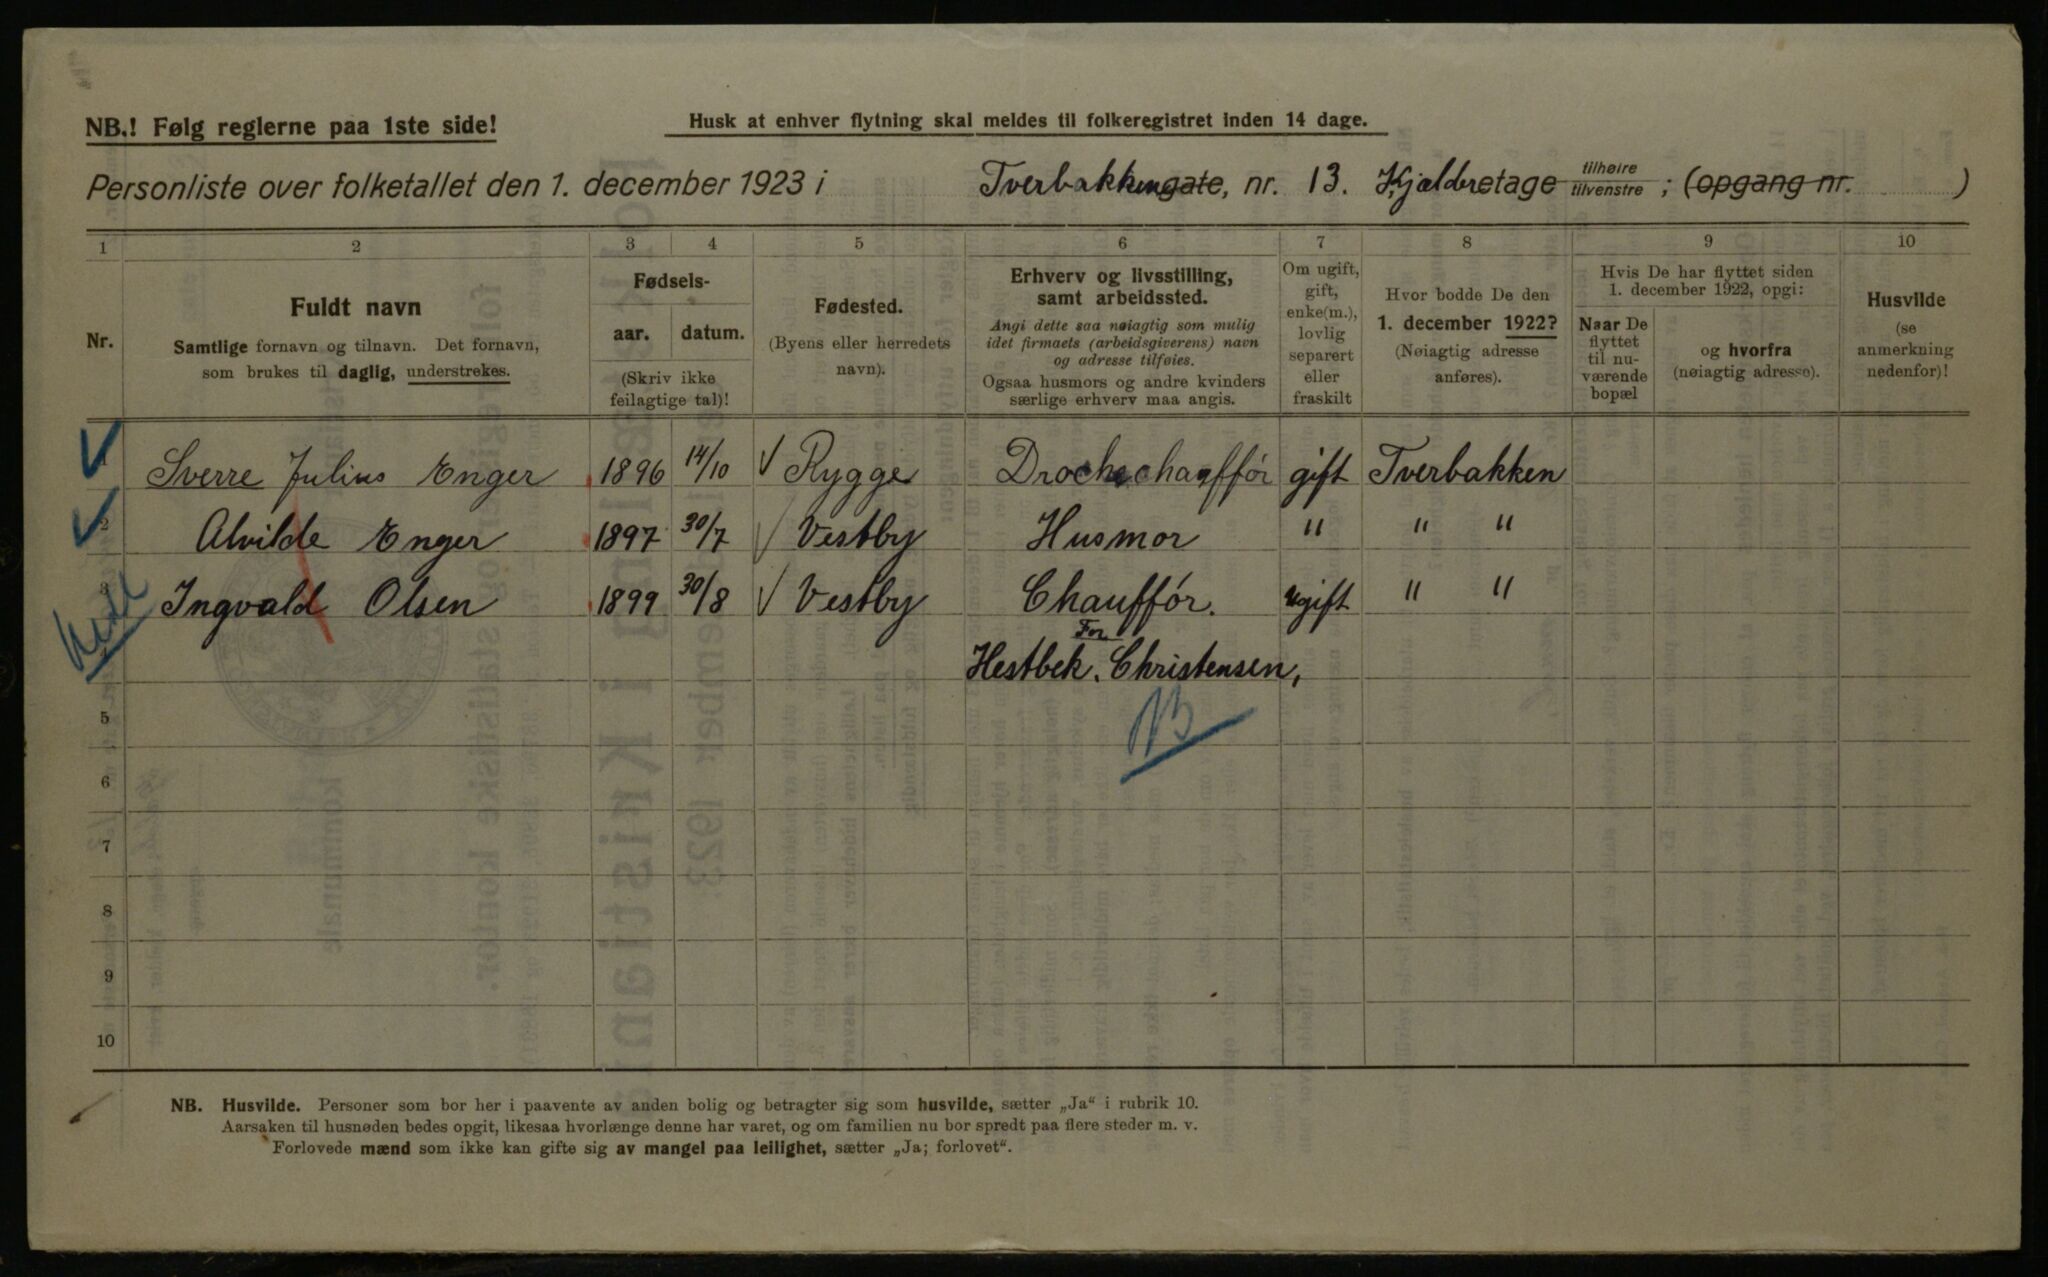 NB.! Følg reglerne paa 1ste side!
Husk at enhver flytning skal meldes til folkeregistret inden 14 dage.
Personliste over folketallet den 1. december 1923 i Tverbakkengate, nr. 13. Kjælderetage tilhøire tilvenstre ; (opgang nr. )
1 2 3 4 5 6 7 8 9 10
Nr.
Fuldt navn
Samtlige fornavn og tilnavn. Det fornavn,
som brukes til daglig, understrekes.
Fødsels-
aar. datum.
(Skriv ikke
feilagtige tal)!
Fødested.
(Byens eller herredets
navn).
Erhverv og livsstilling,
samt arbeidssted.
Angi dette saa nøiagtig som mulig
idet firmaets (arbeidsgiverens) navn
og adresse tilføies.
Ogsaa husmors og andre kvinders
særlige erhverv maa angis.
Om ugift,
gift,
enke(m.),
lovlig
separert
eller
fraskilt
Hvor bodde De den
1. december 1922?
(Nøiagtig adresse
anføres).
Hvis De har flyttet siden
1. december 1922, opgi:
Naar De
flyttet
til nu-
værende
bopæl
og hvorfra
(nøiagtig adresse).
Husvilde
(se
anmerkning
nedenfor)!
1 Sverre Julius Enger 1896 14/10 Rygge Drochechauffór gift Tverbakken
2 Alvilde Enger 1897 30/7 Vestby Husmor " " "
3 Ingvald Olsen 1899 30/8 Vestby Chauffór. ugift " "
For
Hestbek. Christensen,
NB
5
6
7
8
9
10
NB. Husvilde. Personer som bor her i paavente av anden bolig og betragter sig som husvilde, sætter „Ja“ i rubrik 10.
Aarsaken til husnøden bedes opgit, likesaa hvorlænge denne har varet, og om familien nu bor spredt paa flere steder m. v.
Forlovede mænd som ikke kan gifte sig av mangel paa leilighet, sætter „Ja; forlovet“.